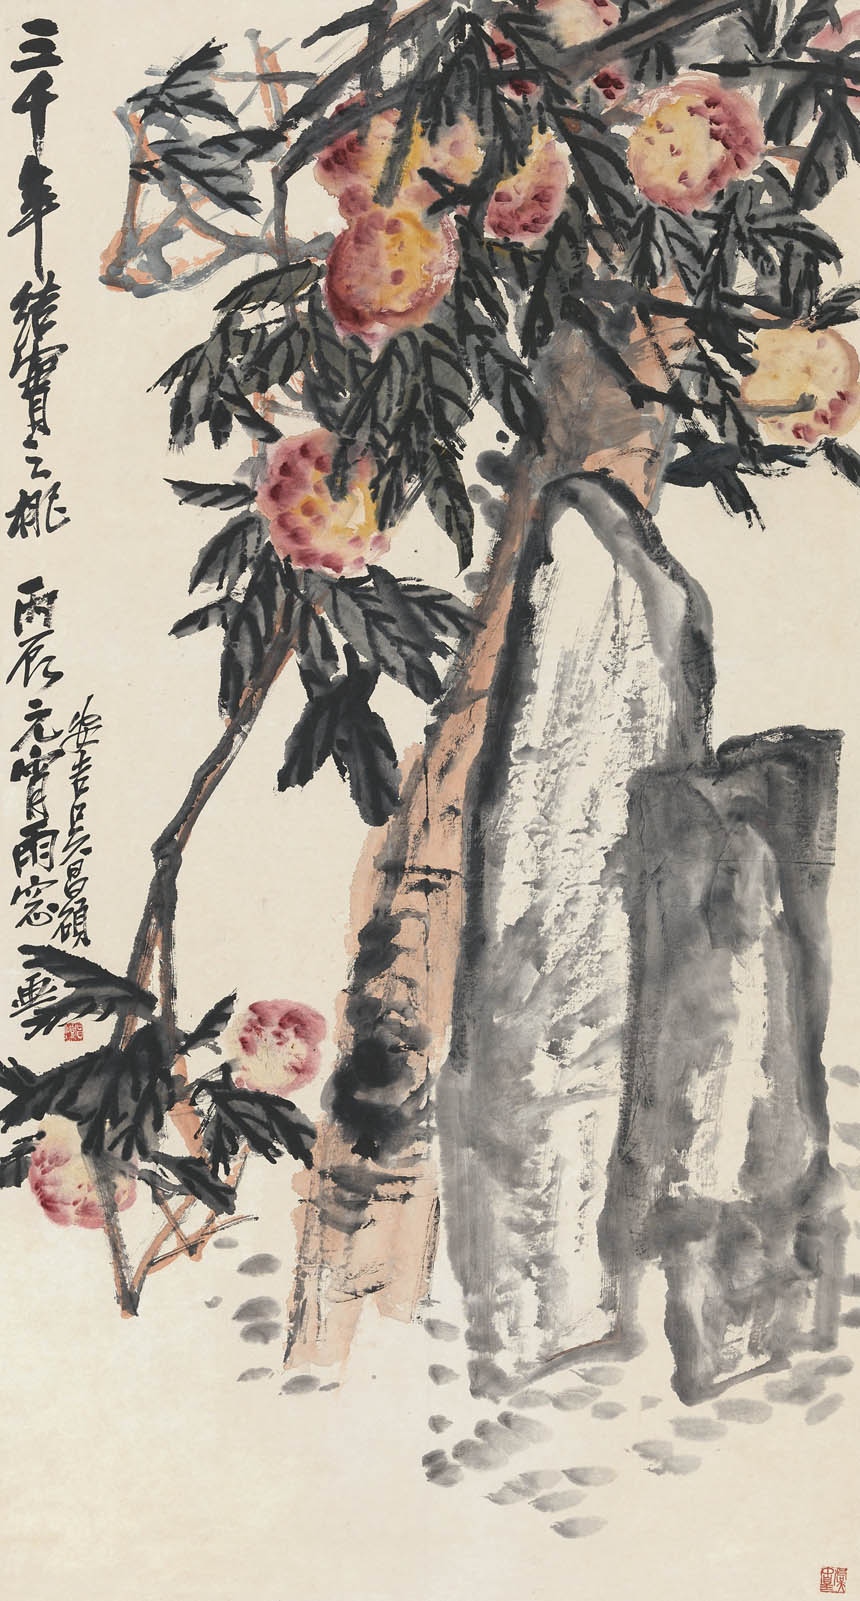 三千年結實之桃 丙辰元宵雨窓
安吉吳昌碩